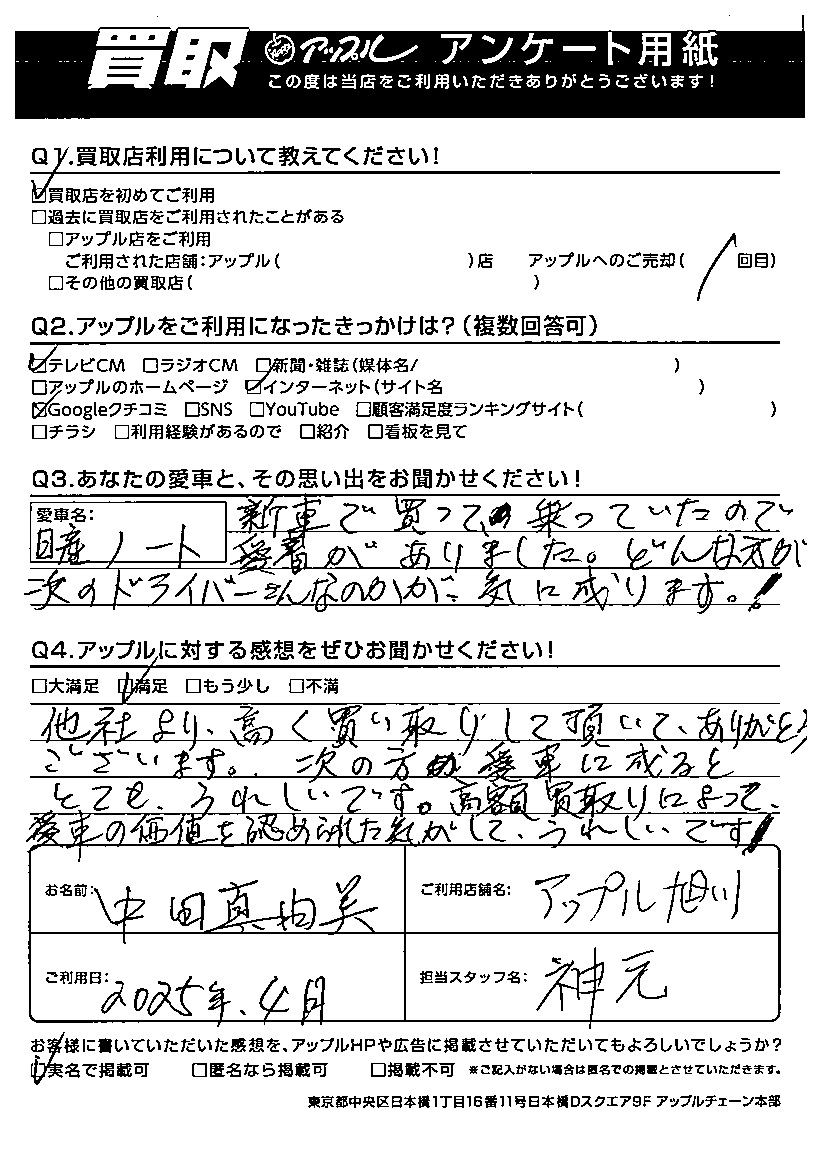 買取 アップル アンケート用紙
この度は当店をご利用いただきありがとうございます！
Q1.買取店利用について教えてください！
☑買取店を初めてご利用
□過去に買取店をご利用されたことがある
□アップル店をご利用
ご利用された店舗：アップル（　　　）店　アップルへのご売却（　/　回目）
□その他の買取店（　　　）
Q2.アップルをご利用になったきっかけは？（複数回答可）
☑テレビCM □ラジオCM □新聞・雑誌（媒体名/　　　）
□アップルのホームページ ☑インターネット（サイト名　　　）
☑Googleクチコミ □SNS □YouTube □顧客満足度ランキングサイト（　　　）
□チラシ □利用経験があるので □紹介 □看板を見て
Q3.あなたの愛車と、その思い出をお聞かせください！
愛車名：日産 ノート
新車で買って、乗っていたので
愛着がありました。どんな方が
次のドライバーさんなのかが、気に成ります。！
Q4.アップルに対する感想をぜひお聞かせください！
□大満足 ☑満足 □もう少し □不満
他社より、高く買い取りして頂いて、ありがとう
ございます。次の方が愛車に成ると
とても、うれしいです。高額買取りによって、
愛車の価値を認められた気がして、うれしいです！
お名前：中田真由美　ご利用店舗名：アップル旭川
ご利用日：2025年、4月　担当スタッフ名：神元
お客様に書いていただいた感想を、アップルHPや広告に掲載させていただいてもよろしいでしょうか？
☑実名で掲載可 □匿名なら掲載可 □掲載不可 ※ご記入がない場合は匿名での掲載とさせていただきます。
東京都中央区日本橋1丁目16番11号日本橋Dスクエア9F アップルチェーン本部